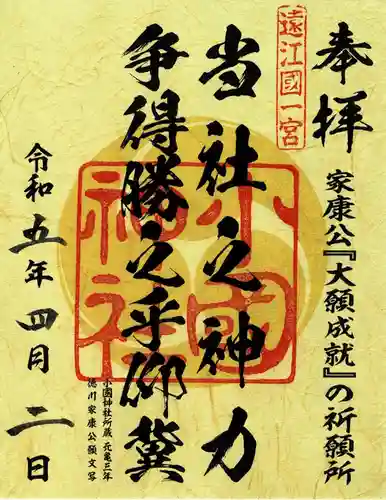 奉拝
家康公『大願成就』の祈願所
遠江國一宮
当社之神力
争得勝之乎仰冀
小國神社
小國神社所蔵 元亀三年
徳川家康公願文写
令和五年四月二日